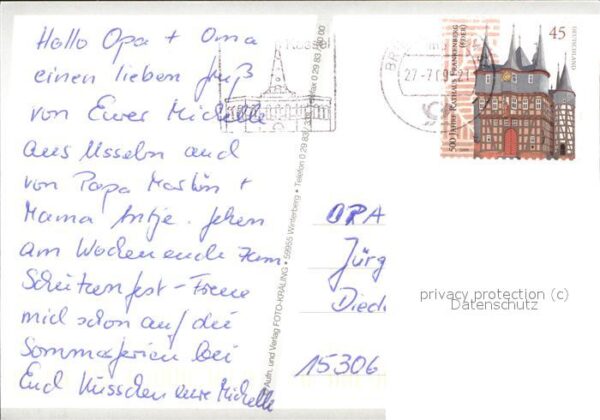 Hallo Opa + Oma
einen lieben Gruß
von Eurer Michelle
aus Usseln und
von Papa Martin +
Mama Antje. Gehen
am Wochenende zum
Schützenfest - Freue
mich schon auf die
Sommerferien bei
Euch Küsschen eure Michelle
Aufn. und Verlag FOTO-KRÄLING • 59955 Winterberg • Telefon 0 29 83 /
Kassel
27-7.09-21
45
DEUTSCHLAND
500 JAHRE RATHAUS FRANKENBERG (EDER)
OPA
Jürg
Died
15306
privacy protection (c)
Datenschutz